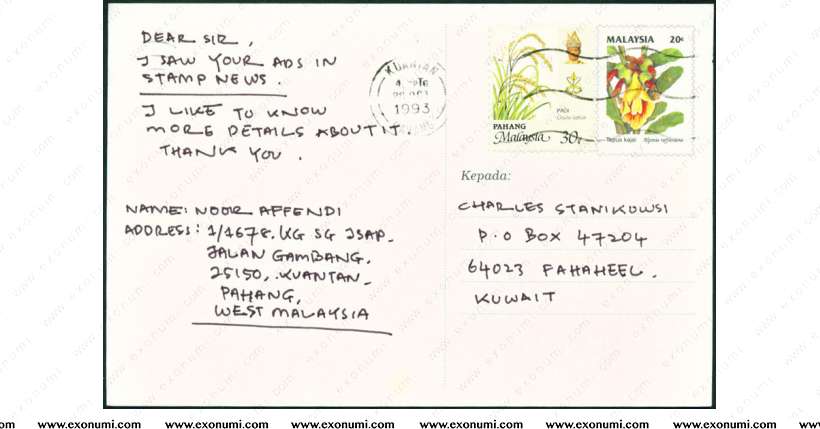 DEAR SIR,
I SAW YOUR ADS IN
STAMP NEWS.
I LIKE TO KNOW
MORE DETAILS ABOUT IT.
THANK YOU.
NAME: NOOR AFFENDI
ADDRESS: 1/1678. KG SG ISAP.
JALAN GAMBANG.
25150, KUANTAN.
PAHANG,
WEST MALAYSIA
KUANTAN
1993
PADI
PAHANG
Malaysia 30c
MALAYSIA 20c
Kepada:
CHARLES STANIKOWSI
P.O BOX 47204
64023 FAHAHEEL.
KUWAIT
www.exonumi.com www.exonumi.com www.exonumi.com www.exonumi.com www.exonumi.com www.exonumi.com